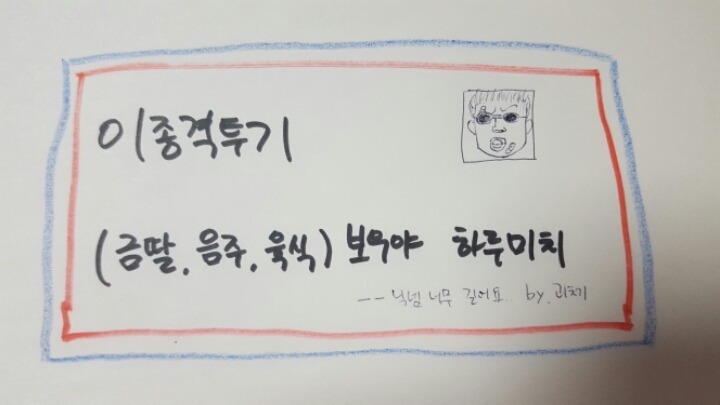 이종격투기
(금딸.음주.육식) 보우야 하루미치
-- 닉넴 너무 길어요.. by.괴치기